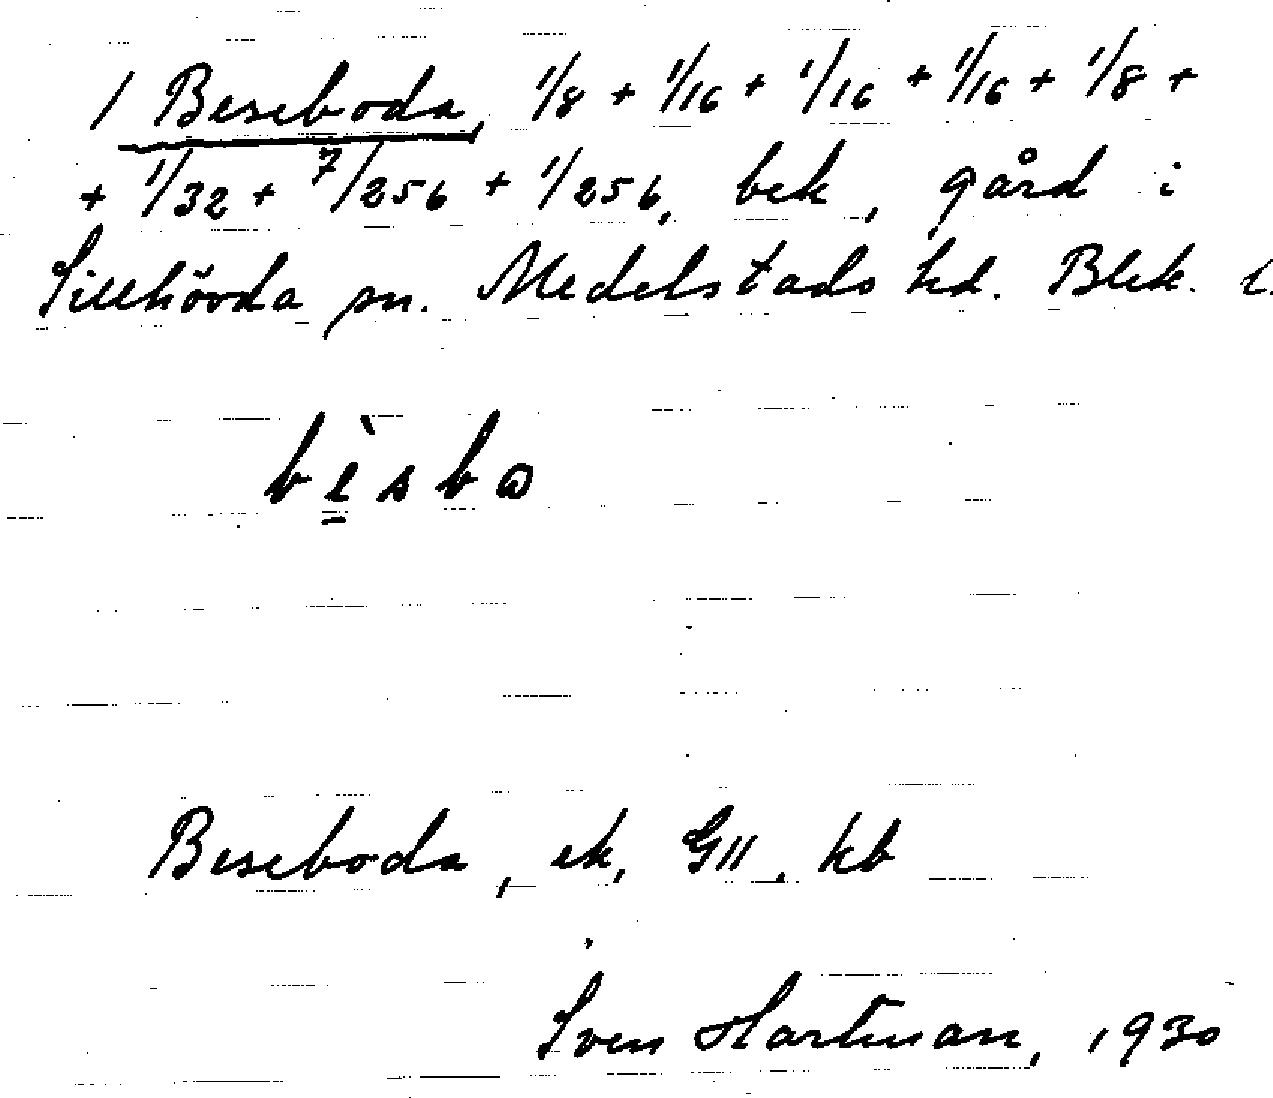 1 Beseboda, 1/8 + 1/16 + 1/16 + 1/16 + 1/8 +
+ 1/32 + 7/256 + 1/256, bek, gård i
Sillhövda sn. Medelstads hd. Blek. l.
bèsbɷ
Beseboda, ek, GII, kb
Sven Hartman, 1930